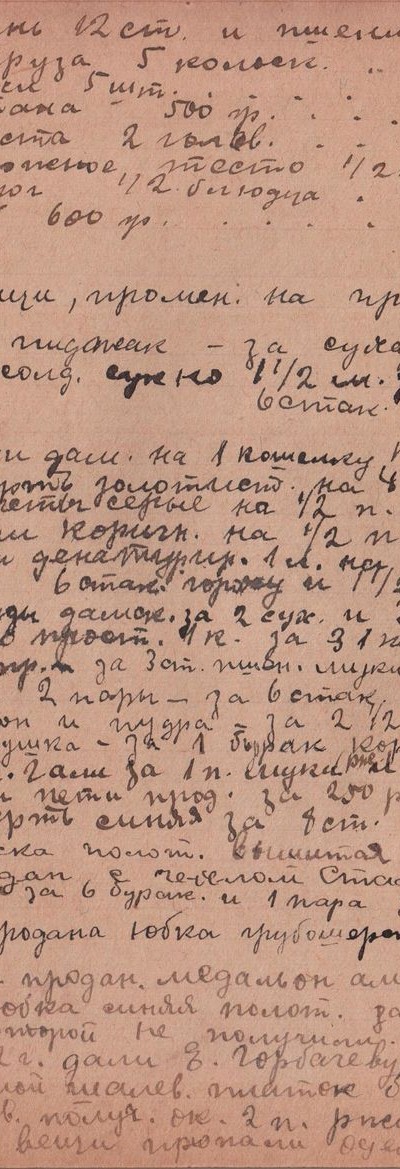 нь 12 ст. и пшени
руза 5 колоск.
5 шт.
тана 500 гр.
ста 2 голов.
оженое, тесто 1/2
ог 1/2 блюдца
600 гр.
ищи, промен. на пр
пиджак - за суха
солд. сукно 1 1/2 м.
6 стак.
и дам. на 1 кошелку
рть золотист. на 4
серые на 1/2 п.
ли коричн. на 1/2 п
и денатурир. 1 л. на
6 стак. гороху и 1 1/2
ды дамск. за 2 сух. и
прост. 1 к. за 3 1 к
пр. за 3 ст. пшен. муки
2 пары - за 6 стак.
он и пудра - за 2 12
ушка - за 1 бурак кор
Гали за 1 п. муки рже
и пети прод. за 250 р
ерть синяя за 8 ст.
ска полот. вышитая
дан с чехлом Стас
за 6 бурак. и 1 пара
родана юбка грубошерс
продан. медальон ам
юбка синяя полот. за
оторой не получили.
2 г. дали З. Горбачеву
мой шалев. платок
в. получ. ок. 2 п. ржи
вещи пропали